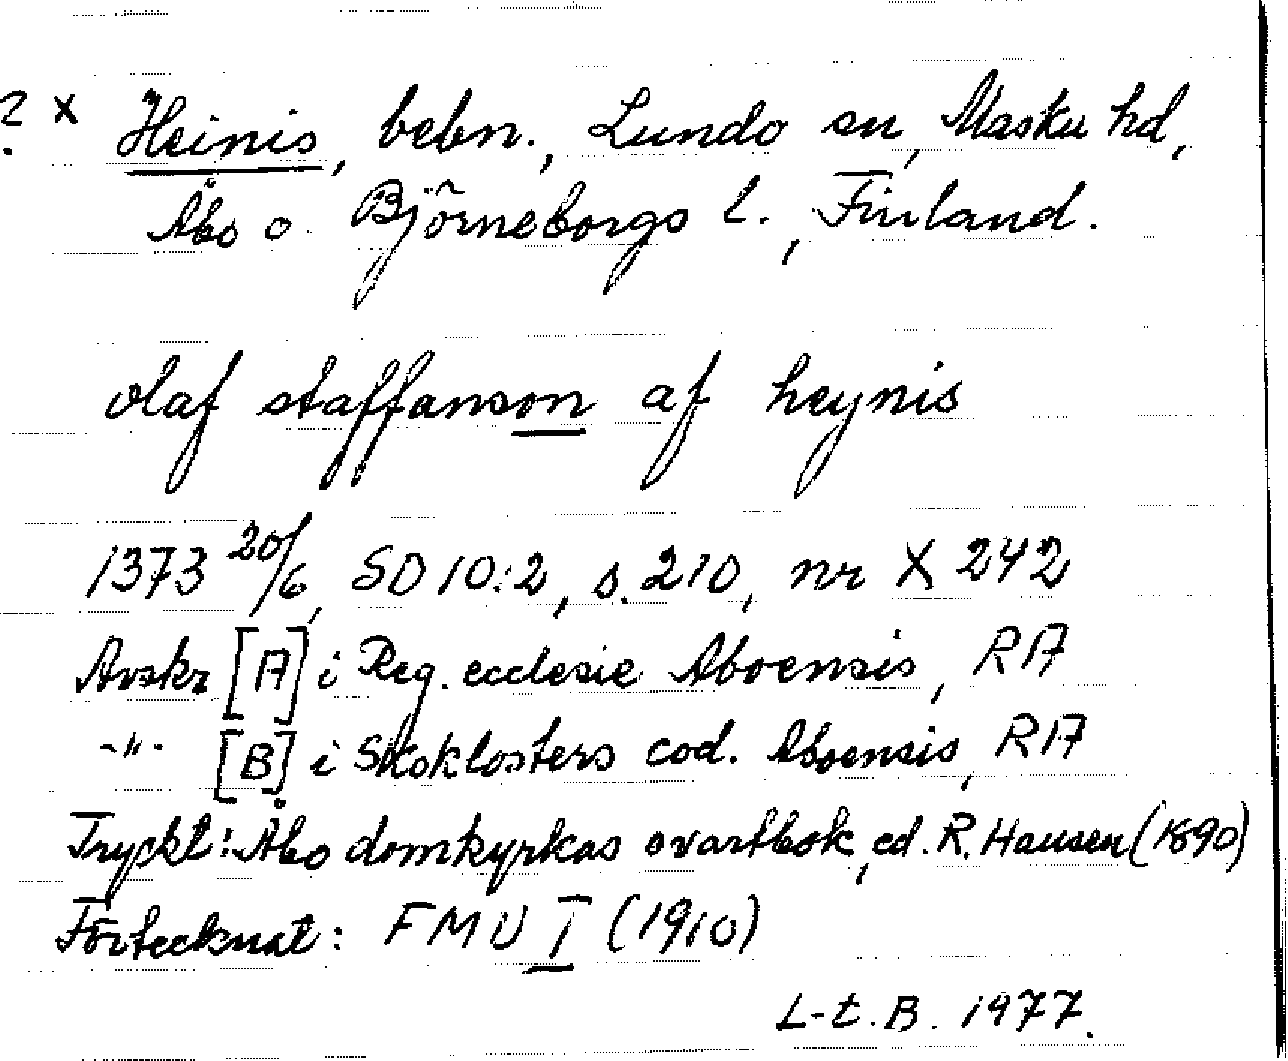 2. x Heinis, bebn., Lundo sn, Masku hd,
Åbo o. Björneborgs l., Finland.
olaf staffanson af heynis
1373 20/6, SD 10:2, s. 210, nr X 242
Avskr [A] i Reg. ecclesie Aboensis, RA
-"- [B] i Skoklosters cod. Aboensis, RA
Tryckt: Åbo domkyrkas svartbok, ed. R. Hausen (1890)
Förtecknat: FMU I (1910)
L-t. B. 1977.